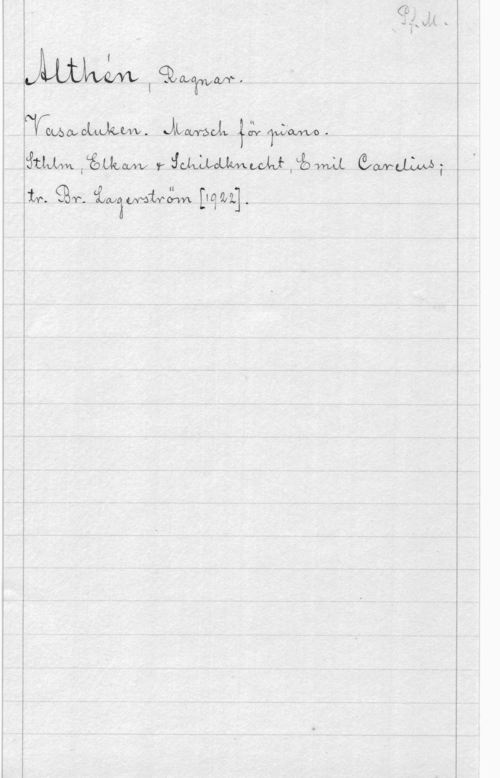 Pf. M.
Althén, Ragnar.
Vasaduken. Marsch för piano.
Sthlm, Elkan & Schildknecht, Emil Carelius;
tr. Br. Lagerström [1922].